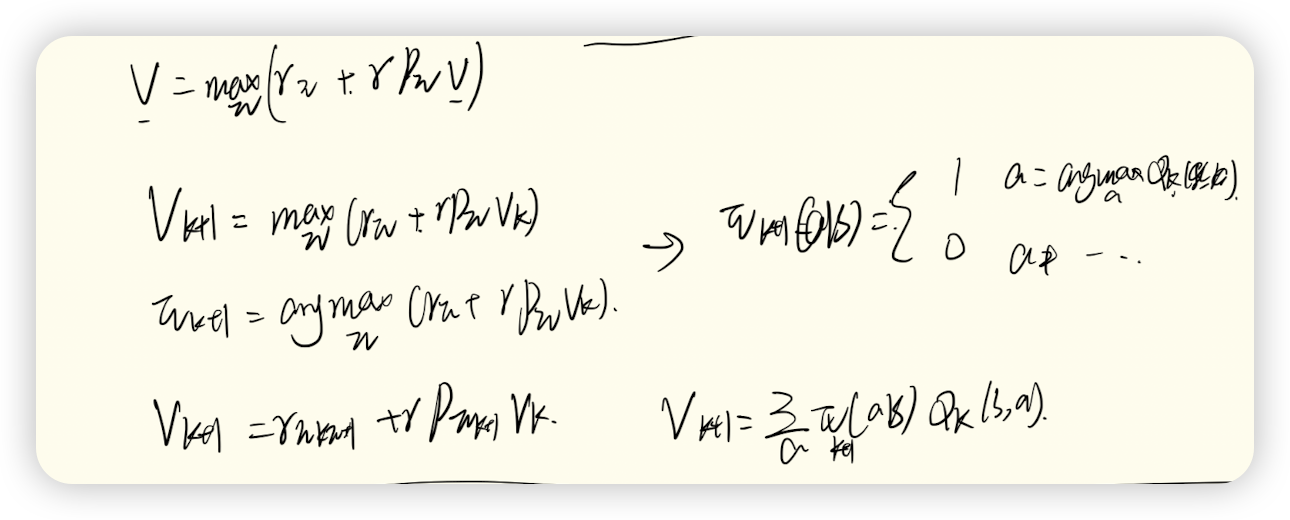 V = max_π (r_π + γ P_π V)
V_{k+1} = max_π (r_π + γ P_π V_k)
π_{k+1} = argmax_π (r_π + γ P_π V_k).
→ π_{k+1}(a|s) = { 1 a = argmax_a Q_k
0 a ≠ - ...
V_{k+1} = r_{π_{k+1}} + γ P_{π_{k+1}} V_k.
V_{k+1} = Σ_a π_{k+1}(a|s) Q_k (s,a).